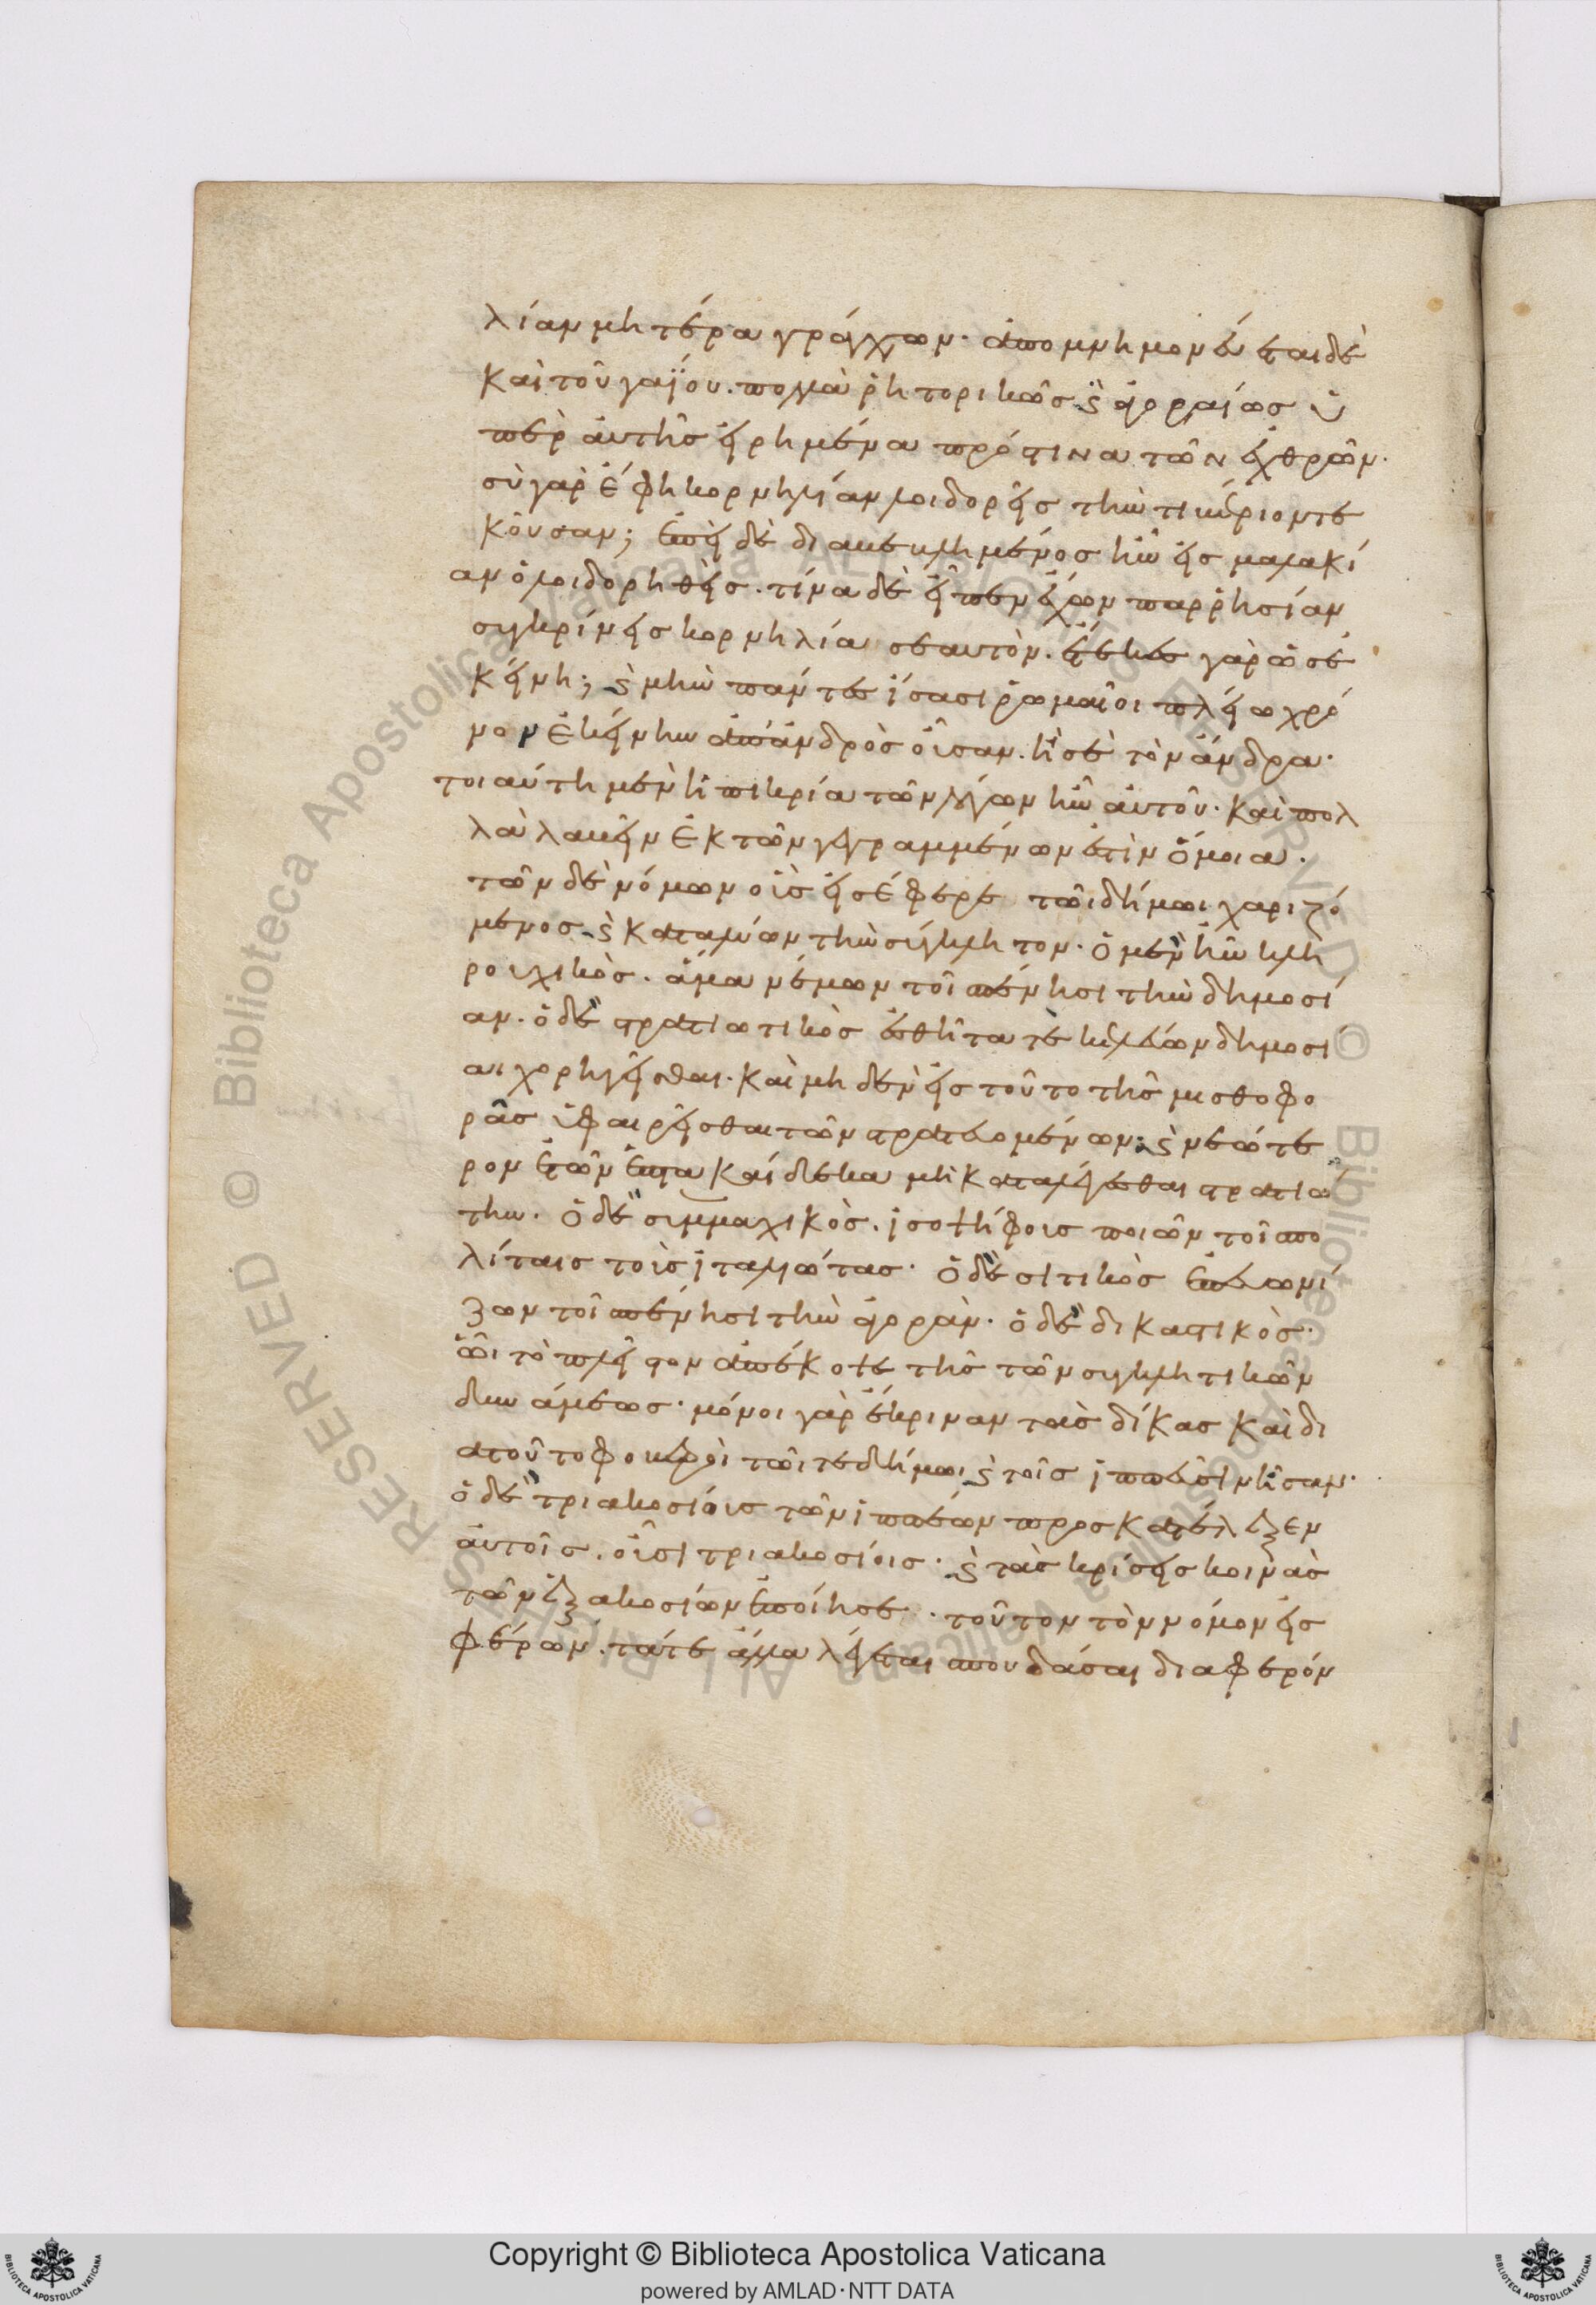 λίαν μητέρα γράγχων· ἀπομνημονεύεται δὲ
καὶ τοῦ γαΐου. πολλὰ ῥητορικῶς καὶ ἀγοραίως ὑ
πὲρ αὐτῆς εἰρημένα πρός τινα τῶν ἐχθρῶν.
σὺ γὰρ ἔφη κορνηλίαν λοιδορεῖς τὴν τιβέριον τε
κοῦσαν; ἐπεὶ δὲ διαβεβλημένος ἦν εἰς μαλακί
αν ὁ λοιδορηθείς. τίνα δὲ εἶπεν ἔχων παρρησίαν
συγκρίνεις κορνηλία σεαυτόν. ἔτεκες γὰρ ὡς ἐ
κείνη; καὶ μὴν πάντες ἴσασι ῥωμαῖοι πλείω χρό
νον ἐκείνην ἀπ' ἀνδρὸς οὖσαν. ἢ σὲ τὸν ἄνδρα·
τοιαύτη μὲν ἡ πικρία τῶν λόγων ἦν αὐτοῦ· καὶ πολ
λὰ λαβεῖν ἐκ τῶν γεγραμμένων ἐστὶν ὅμοια.
τῶν δὲ νόμων οὓς εἰσέφερε τῶι δήμωι χαριζό
μενος καὶ καταλύων τὴν σύγκλητον. ὁ μὲν ἦν κλη
ρουχικὸς. ἅμα νέμων τοῖς πένησι τὴν δημοσί
αν. ὁ δὲ στρατιωτικὸς ἐσθῆτα τὲ κελεύων δημοσί
αι χορηγεῖσθαι. καὶ μηδὲν εἰς τοῦτο τῆς μισθοφο
ρᾶς ὑφαιρεῖσθαι τῶν στρατευομένων· καὶ νεώτε
ρον ἐτῶν ἑπτακαίδεκα μὴ καταλέγεσθαι στρατιώ
την. ὁ δὲ συμμαχικὸς. ἰσοψήφους ποιῶν τοῖς πο
λίταις τοὺς ἰταλιώτας· ὁ δὲ σιτικὸς ἐπευωνί
ζων τοῖς πένησι τὴν ἀγορὰν. ὁ δὲ δικαστικὸς.
ὧι τὸ πλεῖστον ἀπέκοψε τῆς τῶν συγκλητικῶν
δυνάμεως· μόνοι γὰρ ἔκριναν τὰς δίκας καὶ δι
ατοῦτο φοβεροὶ τῶι τε δήμωι καὶ τοῖς ἱππεῦσιν ἦσαν·
ὁ δὲ τριακοσίους τῶν ἱππέων προσκατέλεξεν
αὐτοῖς. οὖσι τριακοσίοις· καὶ τὰς κρίσεις κοινὰς
τῶν ἑξακοσίων ἐποίησε. τοῦτον τὸν νόμον εἰς
φέρων. τά τε ἄλλα λέγεται σπουδάσαι διαφερόν
Copyright © Biblioteca Apostolica Vaticana
powered by AMLAD·NTT DATA